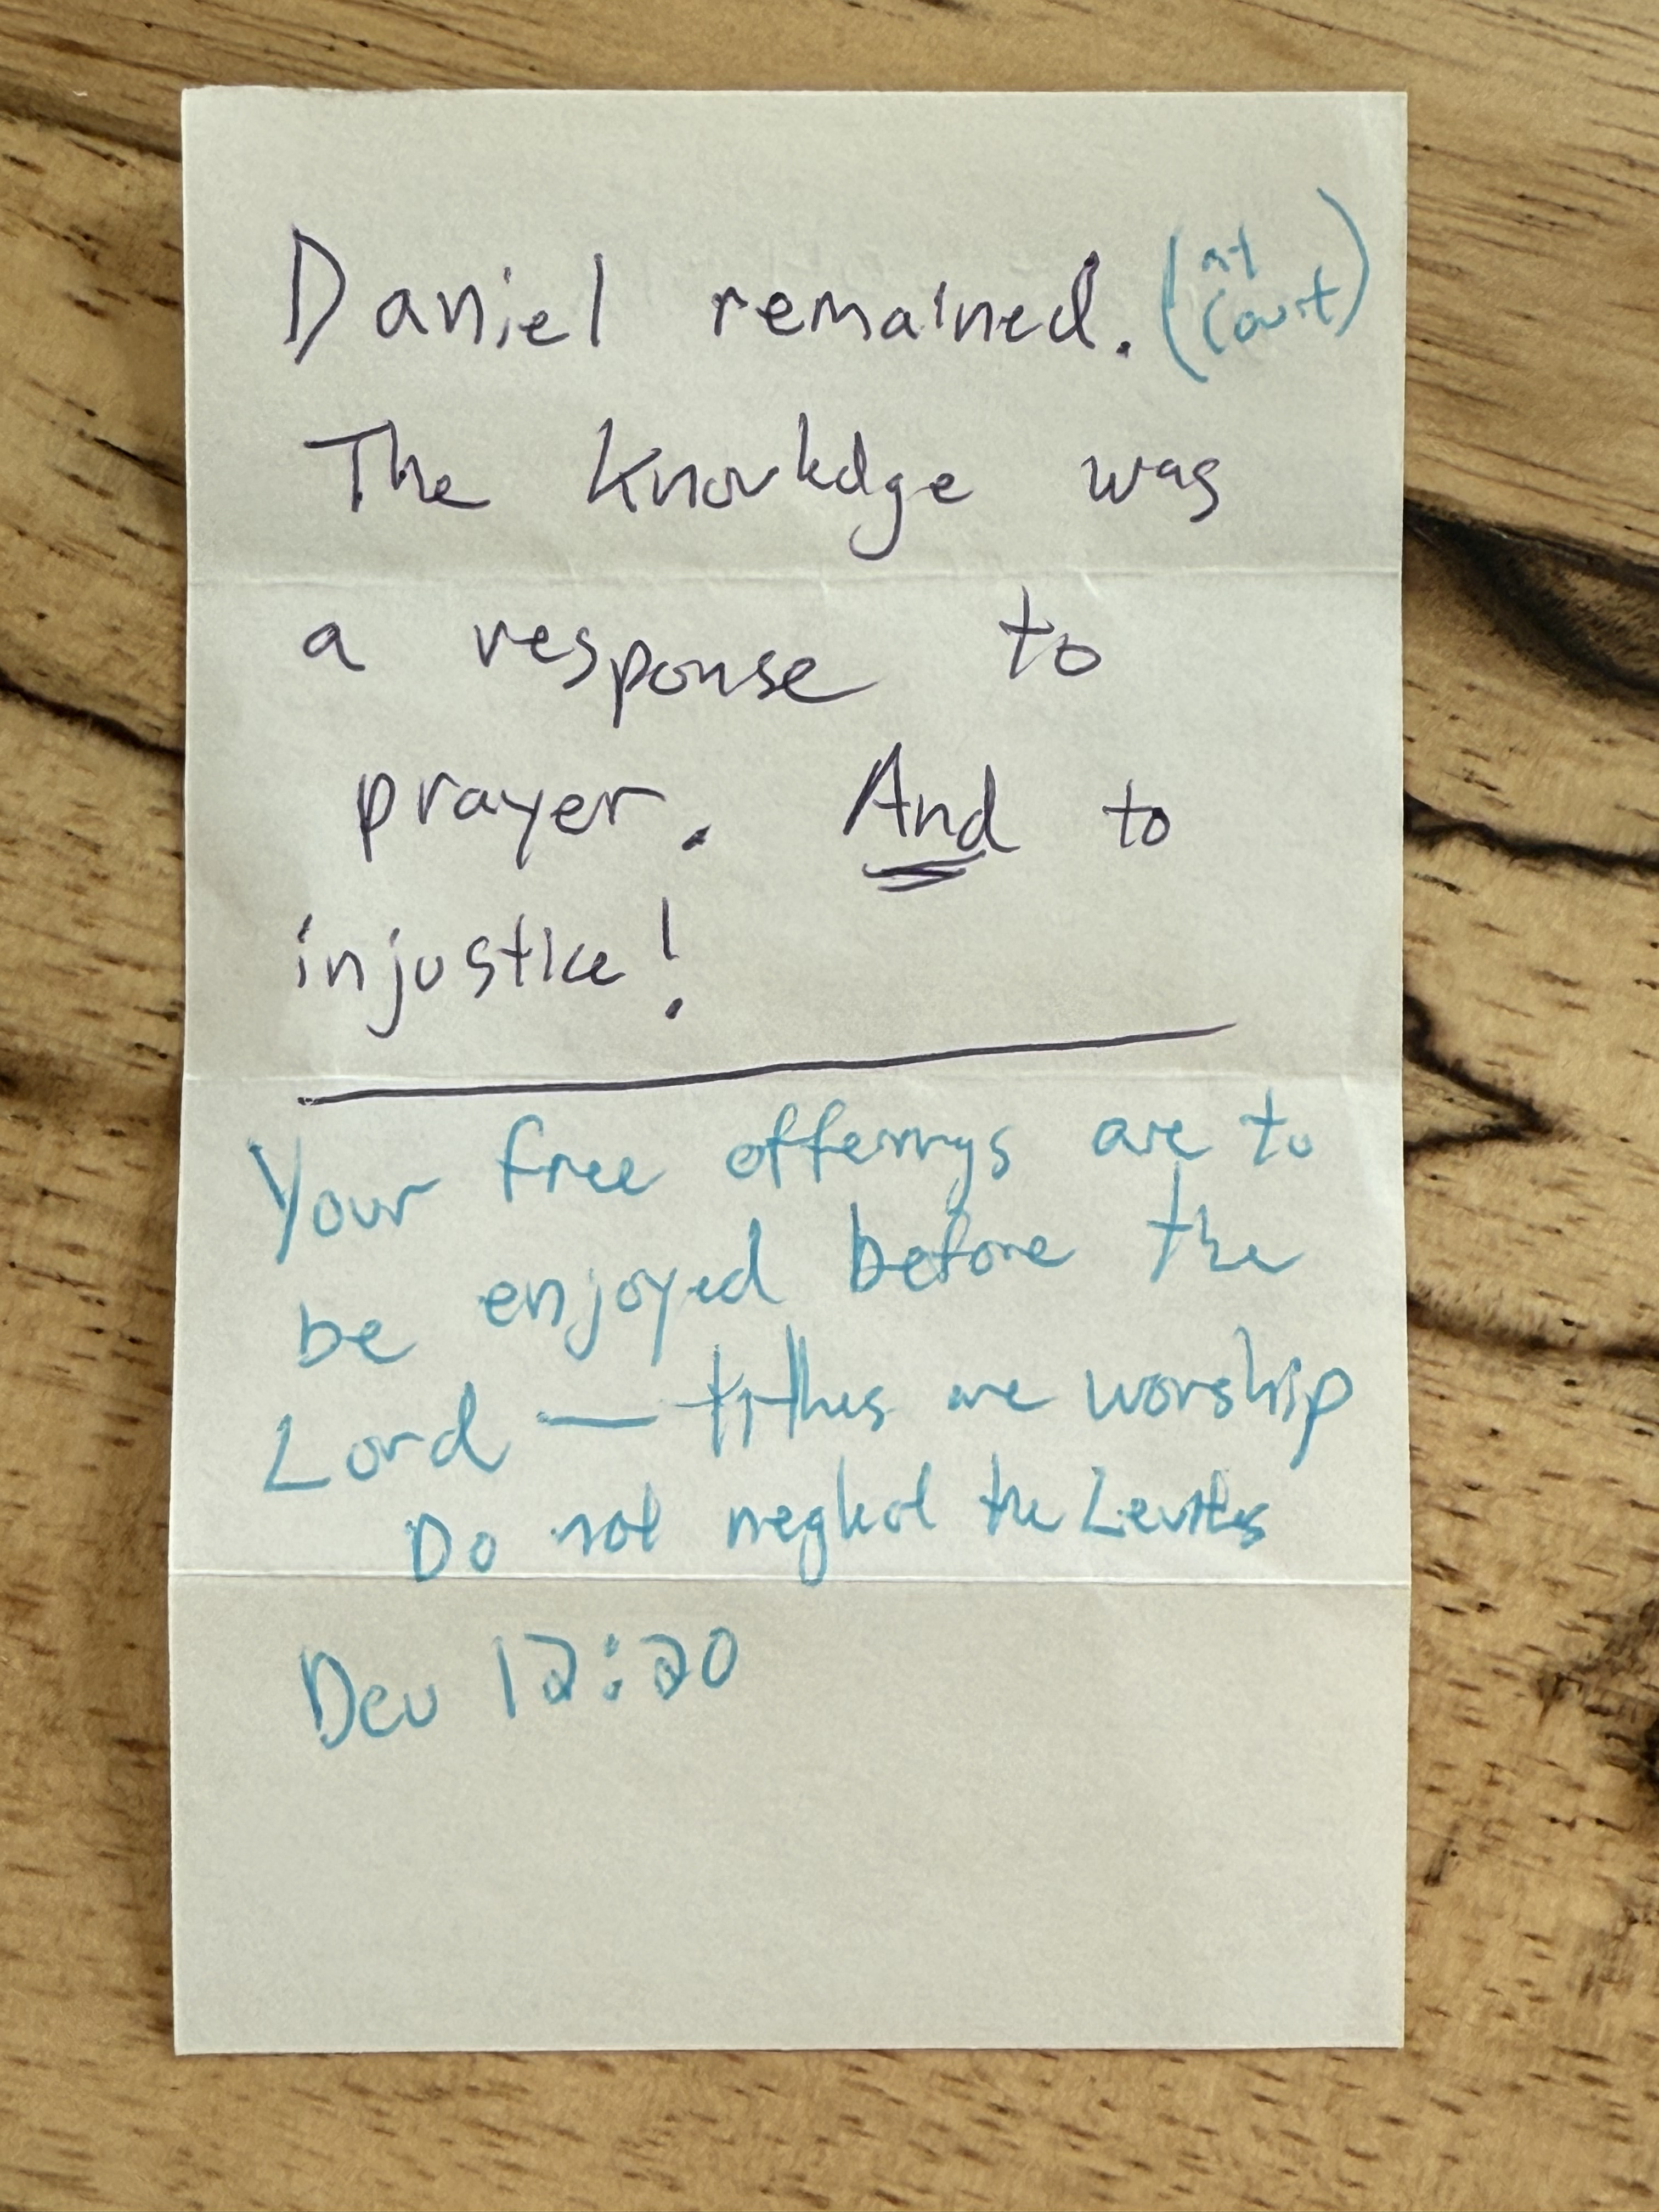 Daniel remained. (at court)
The knowledge was
a response to
prayer. And to
injustice!
Your free offerings are to
be enjoyed before the
Lord — tithes are worship
Do not neglect the Levites
Deu 12:20